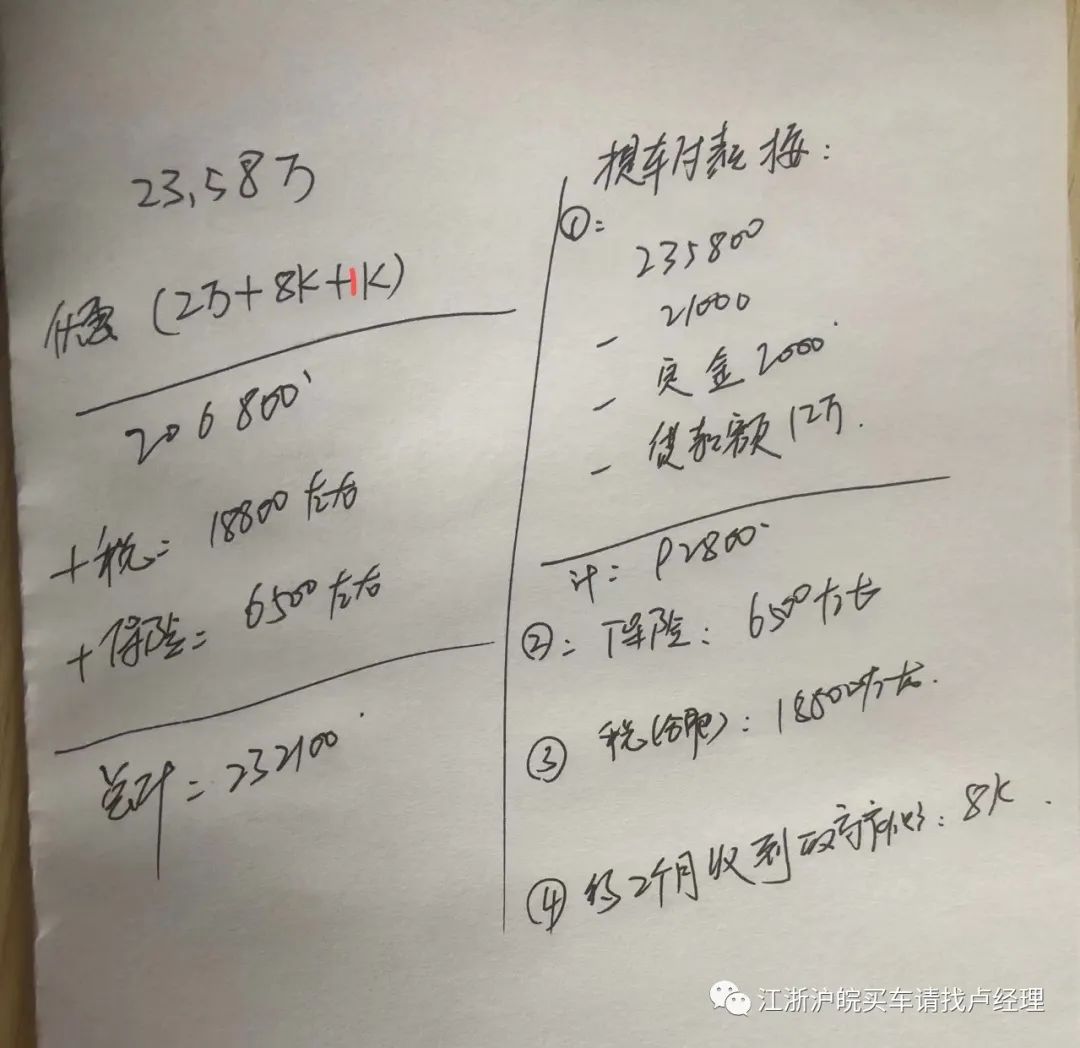 23,58万
优惠（2万+8K+1K）
206800
+税= 18800左右
+保险= 6500左右
总计=232100
提车付款楼:
①=
235800
- 21000
- 定金2000
- 贷款额12万.
计: 92800
②: 保险: 6500左右
③ 税(含服): 18800左右.
④ 约2个月收到政府补贴: 8K.
江浙沪皖买车请找卢经理